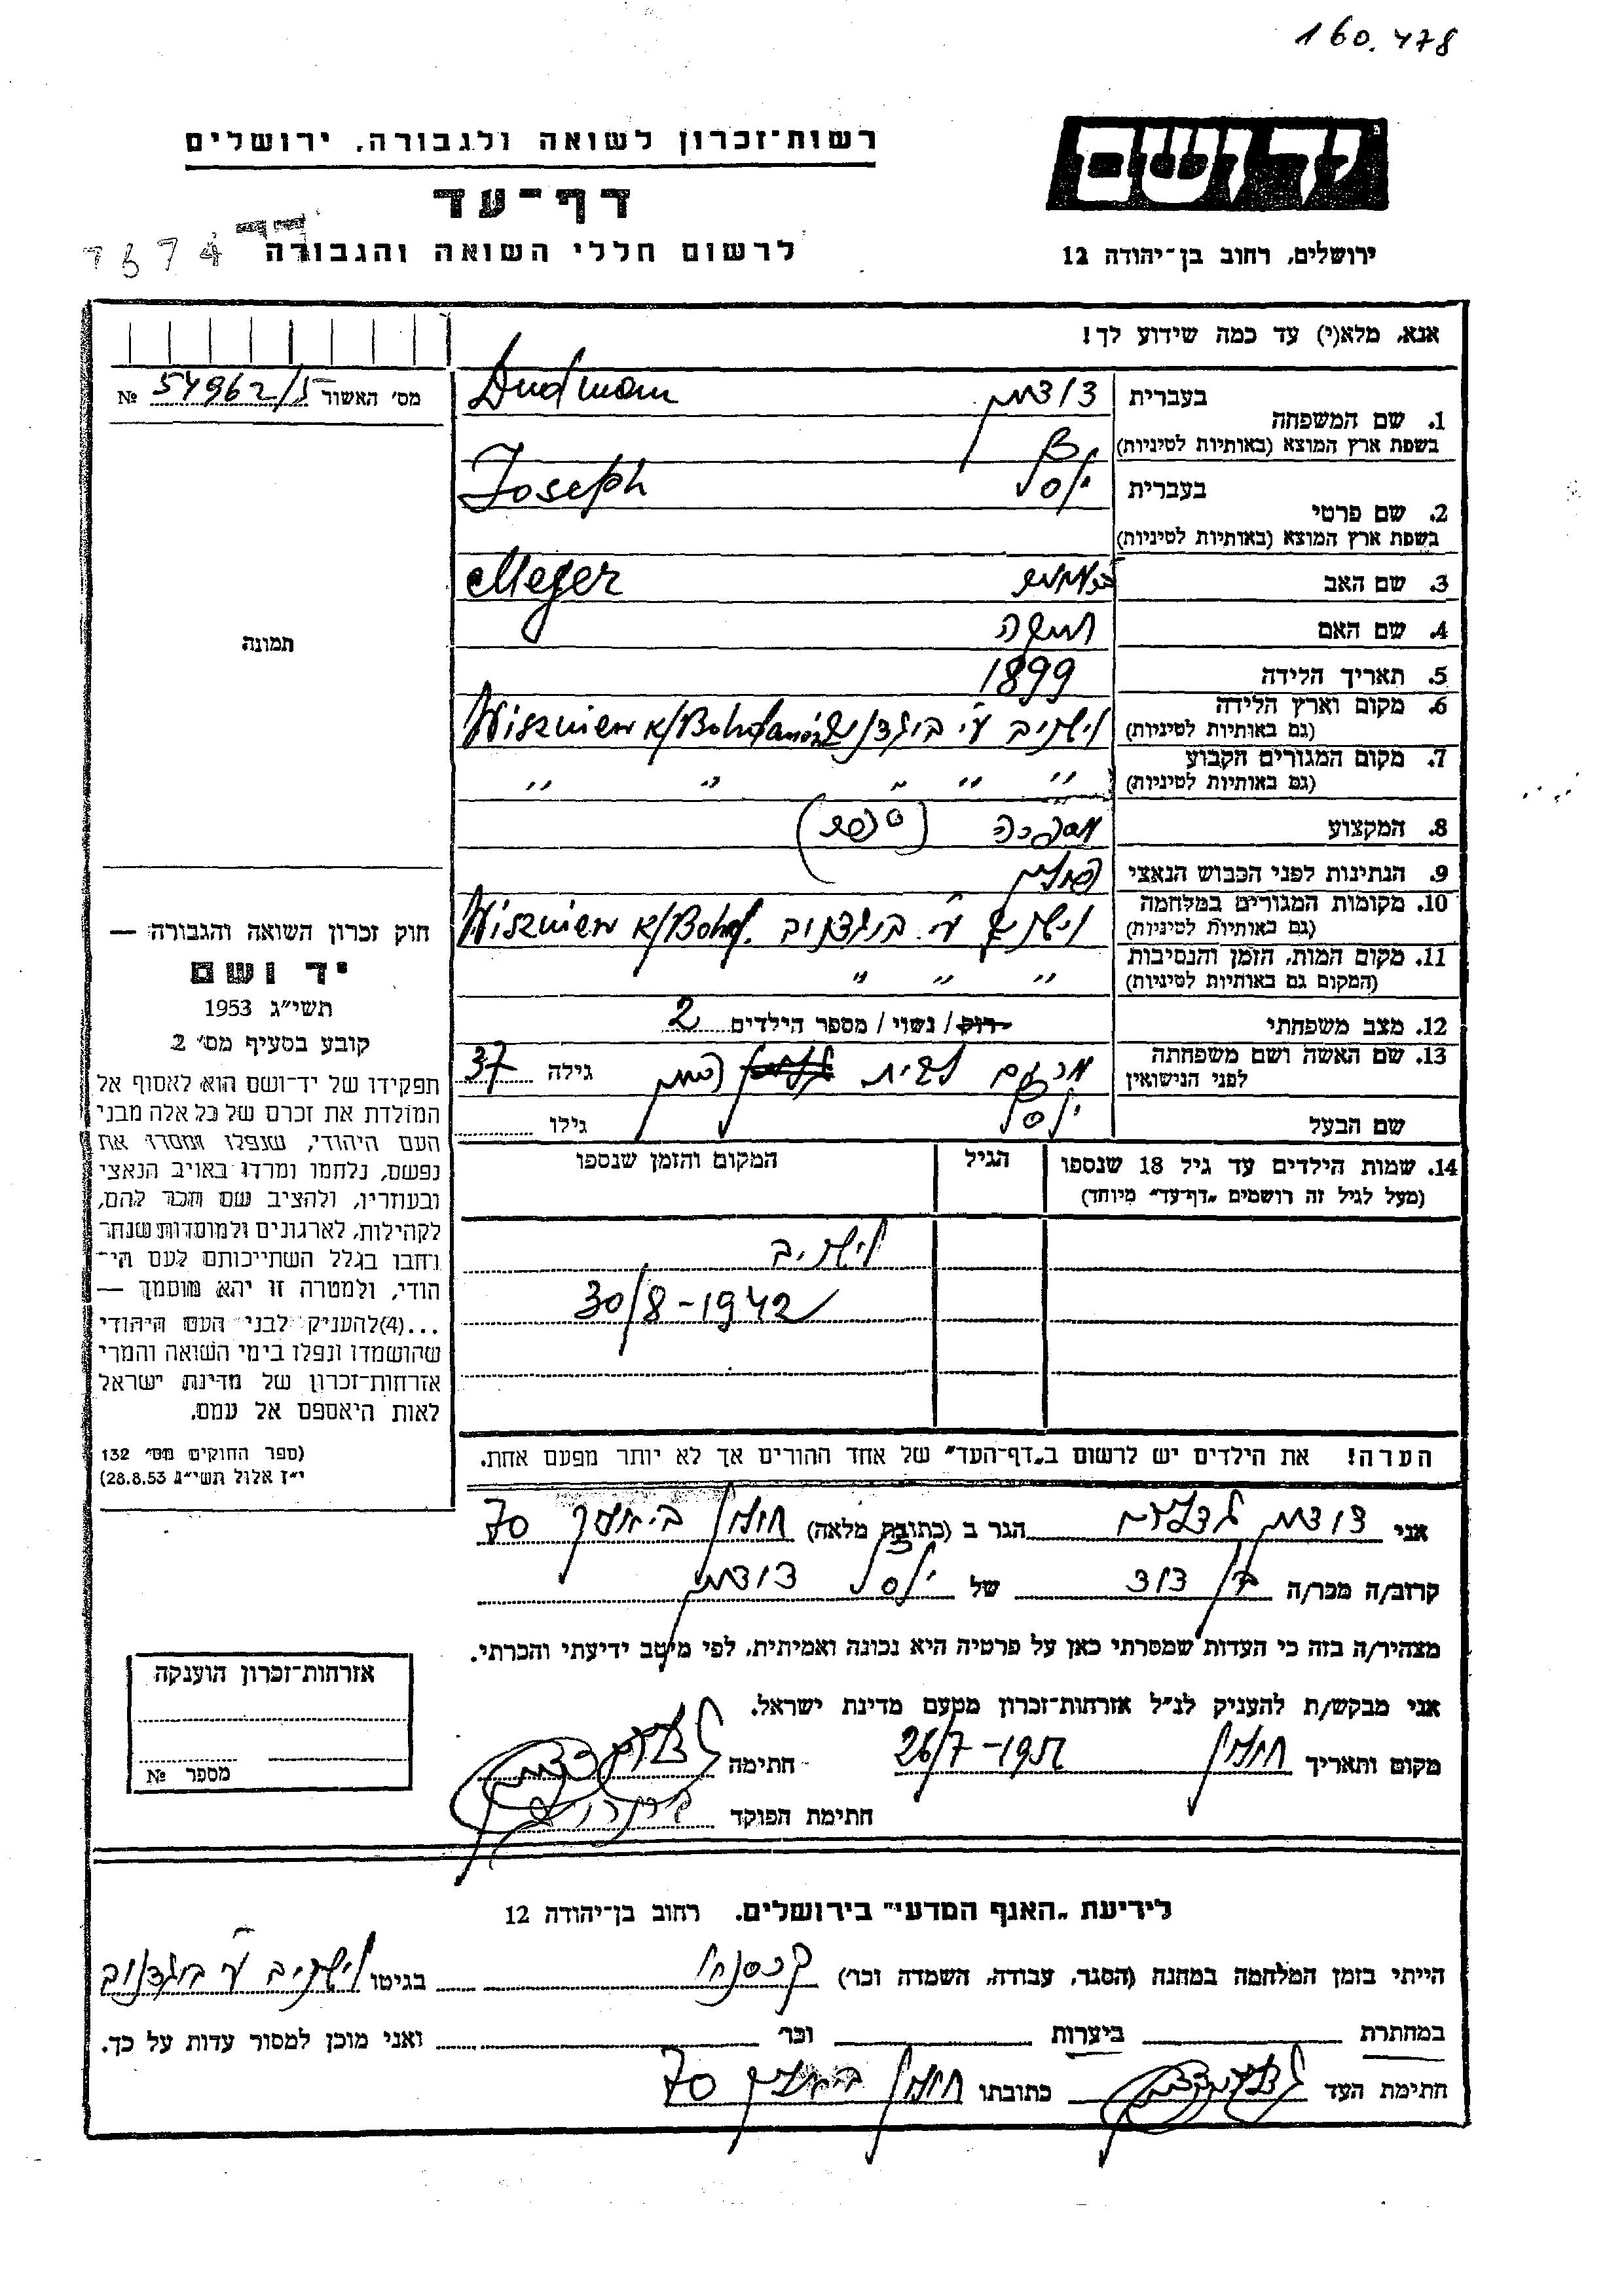 160.478
רשות־זכרון לשואה ולגבורה, ירושלים
יד ושם
דף־עד
לרשום חללי השואה והגבורה
ירושלים, רחוב בן־יהודה 12
אנא, מלא(י) עד כמה שידוע לך!
מס׳ האשור 54962/5 №
1. שם המשפחה
בעברית דודמן Dudman
בשפת ארץ המוצא (באותיות לטיניות)
2. שם פרטי
בעברית יוסף Joseph
בשפת ארץ המוצא (באותיות לטיניות)
3. שם האב Mejer
4. שם האם
5. תאריך הלידה 1899
6. מקום וארץ הלידה
(גם באותיות לטיניות) וישניב ע״י Wiszniew k/
7. מקום המגורים הקבוע
(גם באותיות לטיניות) ״ ״ ״ ״ ״
8. המקצוע
9. הנתינות לפני הכבוש הנאצי
10. מקומות המגורים במלחמה
(גם באותיות לטיניות) וישניב ע״י בוגדנוב Wiszniew k/Bohd.
11. מקום המות, הזמן והנסיבות
(המקום גם באותיות לטיניות) ״ ״ ״
12. מצב משפחתי רוק / נשוי / מספר הילדים 2
13. שם האשה ושם משפחתה
לפני הנישואין מרים לבית גילה 37
שם הבעל יוסף גילו
14. שמות הילדים עד גיל 18 שנספו
(מעל לגיל זה רושמים „דף־עד״ מיוחד)
הגיל
המקום והזמן שנספו
וישניב
30/8-1942
הערה! את הילדים יש לרשום ב„דף־העד״ של אחד ההורים אך לא יותר מפעם אחת.
תמונה
חוק זכרון השואה והגבורה —
יד ושם
תשי״ג 1953
קובע בסעיף מס׳ 2
תפקידו של יד־ושם הוא לאסוף אל
המולדת את זכרם של כל אלה מבני
העם היהודי, שנפלו ומסרו את
נפשם, נלחמו ומרדו באויב הנאצי
ובעוזריו, ולהציב שם וזכר להם,
לקהילות, לארגונים ולמוסדות שנח־
רבו בגלל השתייכותם לעם הי־
הודי, ולמטרה זו יהא מוסמך —
...(4)להעניק לבני העם היהודי
שהושמדו ונפלו בימי השואה והמרי
אזרחות־זכרון של מדינת ישראל
לאות היאספם אל עמם.
(ספר החוקים מס׳ 132
י״ז אלול תשי״ג 28.8.53)
אני דודמן הגר ב (כתובת מלאה) חולון 70
קרוב/ה מכר/ה בן דוד של יוסף דודמן
מצהיר/ה בזה כי העדות שמסרתי כאן על פרטיה היא נכונה ואמיתית, לפי מיטב ידיעתי והכרתי.
אני מבקש/ת להעניק לנ״ל אזרחות־זכרון מטעם מדינת ישראל.
מקום ותאריך חולון 26/7- חתימה
חתימת הפוקד
אזרחות־זכרון הוענקה
מספר №
לידיעת „האגף המדעי״ בירושלים, רחוב בן־יהודה 12
הייתי בזמן המלחמה במחנה (הסגר, עבודה, השמדה וכו׳) בגיטו וישניב ע״י בוגדנוב
במחתרת ביערות וכו׳ ואני מוכן למסור עדות על כך.
חתימת העד כתובתו חולון 70